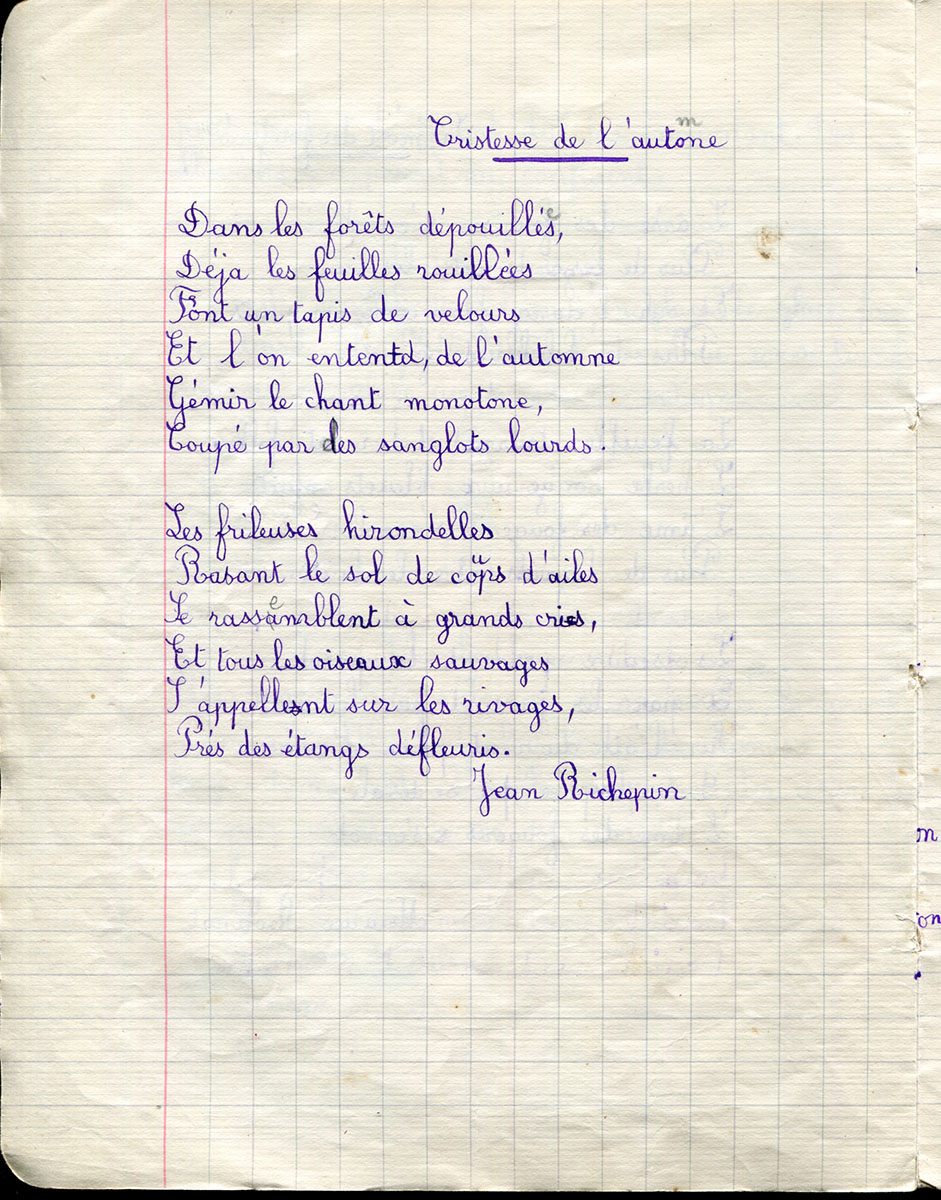 Tristesse de l'automne
Dans les forêts dépouillées,
Déja les feuilles rouillées
Font un tapis de velours
Et l'on entend, de l'automne
Gémir le chant monotone,
Coupé par des sanglots lourds.
Les frileuses hirondelles
Rasant le sol de coups d'ailes
Se rassemblent à grands cris,
Et tous les oiseaux sauvages
S'appellent sur les rivages,
Prés des étangs défleuris.
Jean Richepin
m
on